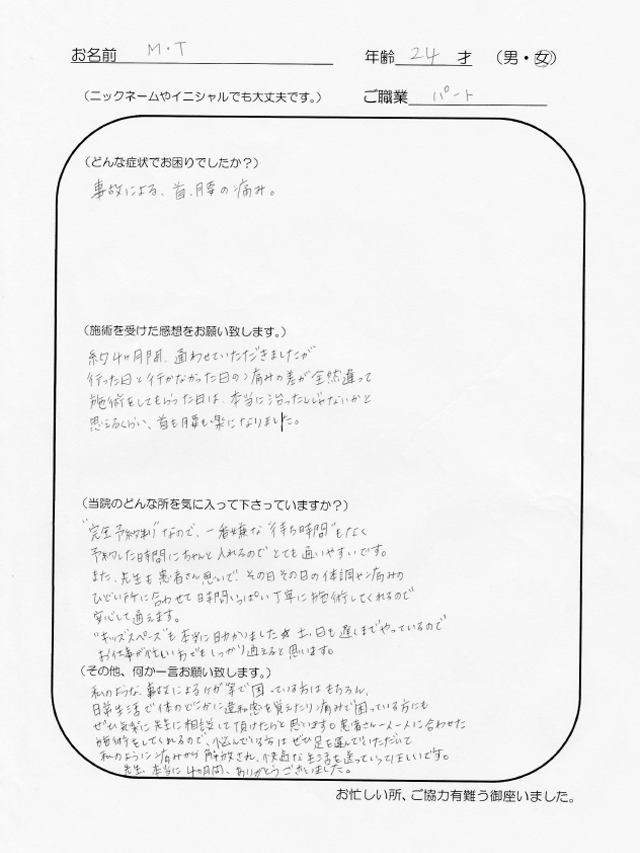 お名前 M・T 年齢 24 才 (男・女)
(ニックネームやイニシャルでも大丈夫です。) ご職業 パート
(どんな症状でお困りでしたか？)
事故による、首、腰の痛み。
(施術を受けた感想をお願い致します。)
約4ヶ月間、通わせていただきましたが
行った日と行かなかった日の痛みの差が全然違って
施術をしてもらった日は、本当に治ったんじゃないかと
思えるくらい、首も腰も楽になりました。
(当院のどんな所を気に入って下さっていますか？)
"完全予約制"なので、一番嫌な"待ち時間"もなく
予約した時間にちゃんと入れるのでとても通いやすいです。
また、先生も患者さん思いで、その日その日の体調や痛みの
ひどい所に合わせて時間いっぱい丁寧に施術してくれるので
安心して通えます。
"キッズスペース"も本当に助かりました☆土、日も遅くまでやっているので
お仕事が忙しい方でもしっかり通えると思います。
(その他、何か一言お願い致します。)
私のような、事故によるケガ等で困っている方はもちろん、
日常生活で体のどこかに違和感を覚えたり痛みで困っている方にも
ぜひ気楽に先生に相談して頂けたらと思います。患者さん一人一人に合わせた
施術をしてくれるので、悩んでいる方はぜひ足を運んでいただいて
私のように痛みから解放され、快適な生活を送っていってほしいです。
先生、本当に4ヶ月間、ありがとうございました。
お忙しい所、ご協力有難う御座いました。